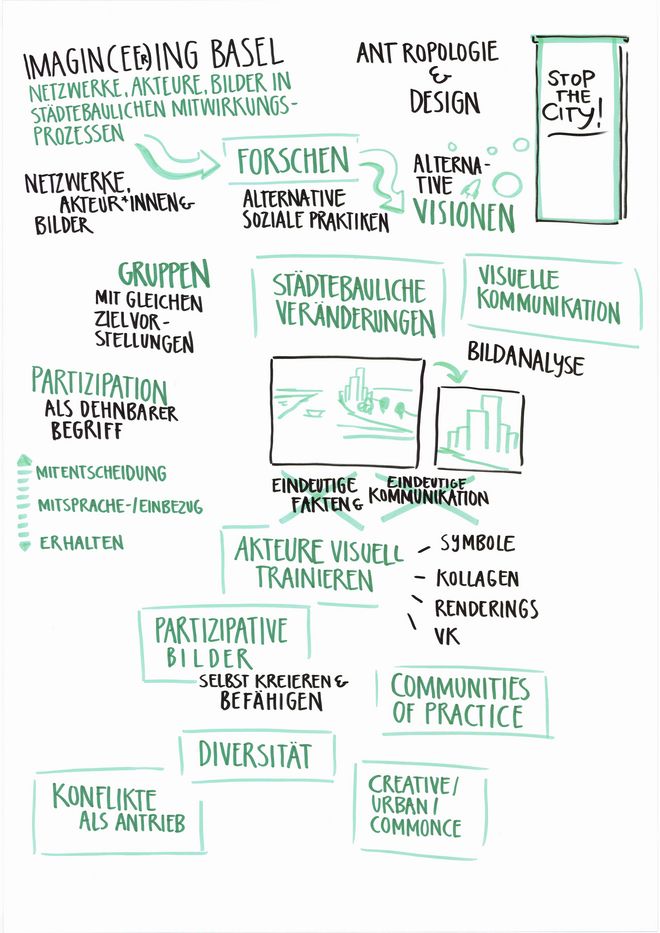 IMAGIN(CEE)®ING BASEL
NETZWERKE, AKTEURE, BILDER IN
STÄDTEBAULICHEN MITWIRKUNGS-
PROZESSEN
ANT ROPOLOGIE
&
DESIGN
STOP
THE
CITY!
NETZWERKE,
AKTEUR*INNEN&
BILDER
FORSCHEN
ALTERNATIVE
SOZIALE PRAKTIKEN
ALTERNA-
TIVE
VISIONEN
GRUPPEN
MIT GLEICHEN
ZIELVOR-
STELLUNGEN
STÄDTEBAULICHE
VERÄNDERUNGEN
VISUELLE
KOMMUNIKATION
BILDANALYSE
PARTIZIPATION
ALS DEHNBARER
BEGRIFF
MITENTSCHEIDUNG
MITSPRACHE-/EINBEZUG
ERHALTEN
EINDEUTIGE
FAKTEN&
EINDEUTIGE
KOMMUNIKATION
AKTEURE VISUELL
TRAINIEREN
- SYMBOLE
- KOLLAGEN
\ RENDERINGS
\ VK
PARTIZIPATIVE
BILDER
SELBST KREIEREN &
BEFÄHIGEN
COMMUNITIES
OF PRACTICE
DIVERSITÄT
KONFLIKTE
ALS ANTRIEB
CREATIVE/
URBAN/
COMMONCE